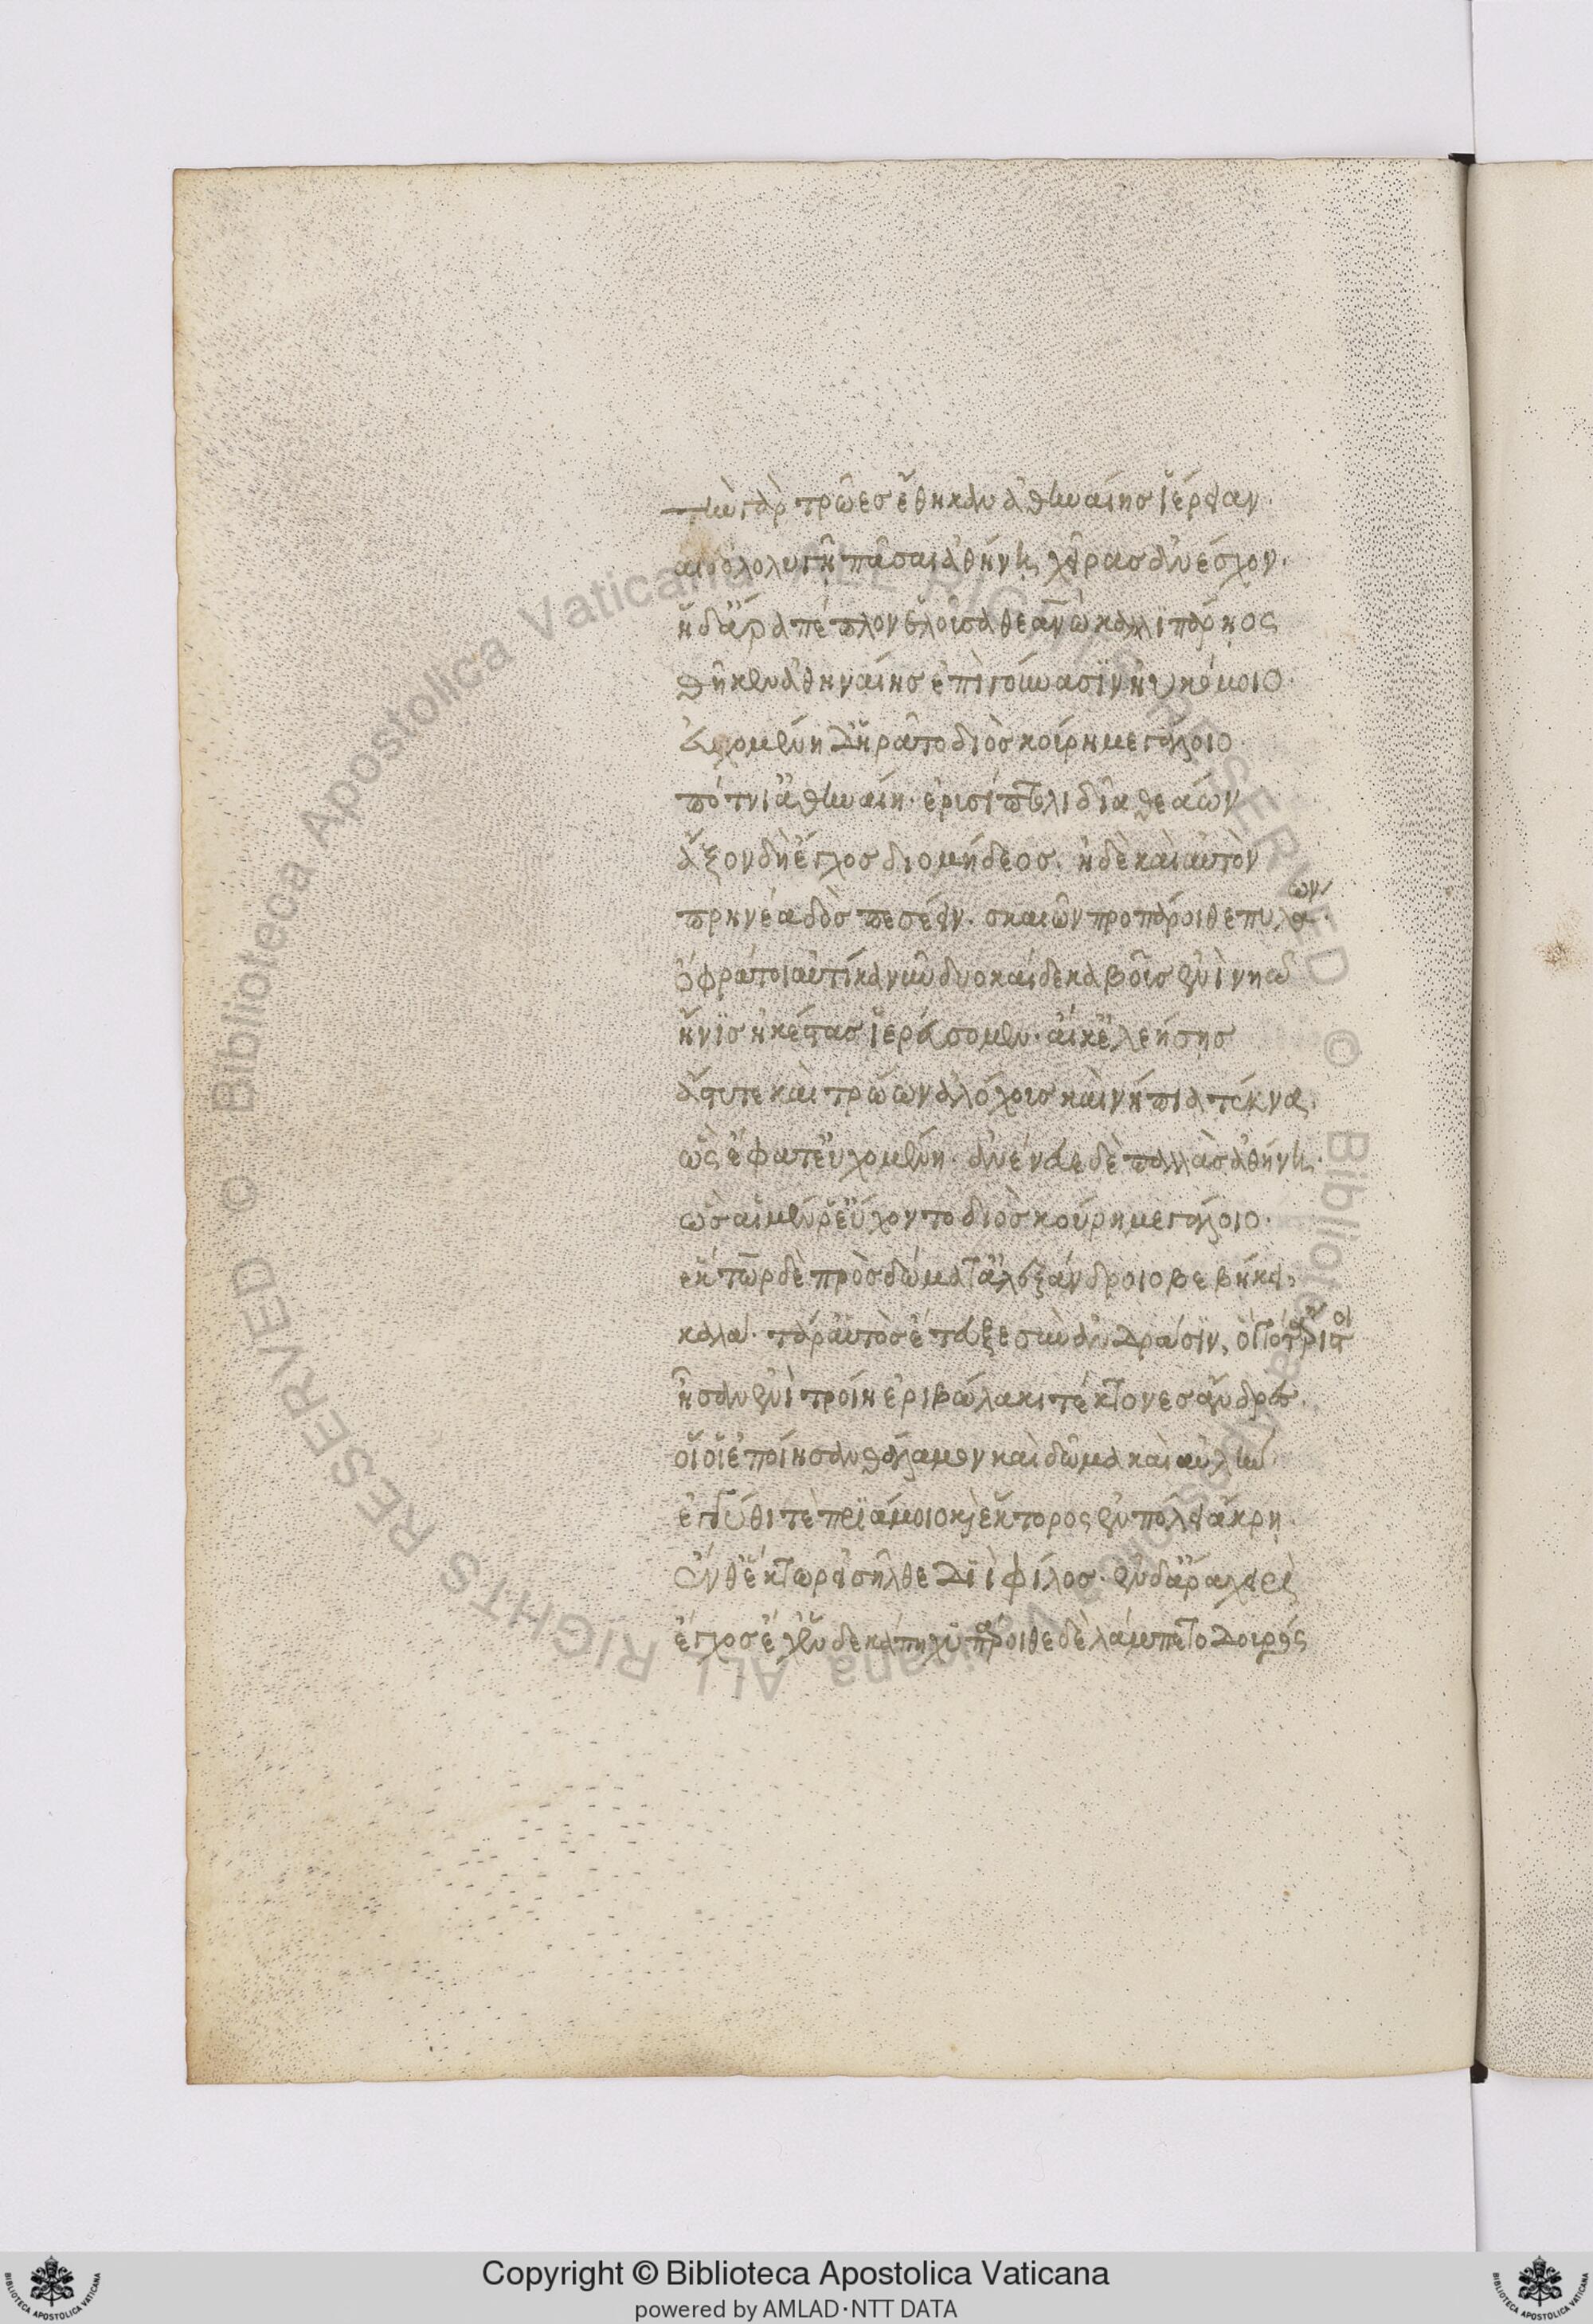 τὴν γὰρ τρῶες ἔθηκαν ἀθηναίης ἱέρειαν.
αἱ δ' ὀλολυγῇ πᾶσαι ἀθήνῃ χεῖρας ἀνέσχον.
ἡ δ' ἄρα πέπλον ἑλοῦσα θεανὼ καλλιπάρηος
θῆκεν ἀθηναίης ἐπὶ γούνασϊν ἠυκόμοιο.
εὐχομένη δ' ἠρᾶτο διὸς κούρη μεγάλοιο.
πότνι' ἀθηναίη. ἐρυσίπτολι δῖα θεάων
ἆξον δὴ ἔγχος διομήδεος. ἠδὲ καὶ αὐτὸν
πρηνέα δὸς πεσέειν. σκαιῶν προπάροιθε πυλάων.
ὄφρά τοι αὐτίκα νῦν δυοκαίδεκα βοῦς ἐνὶ νηῷ
ἤνϊς ἠκέστας ἱερεύσομεν. αἴ κ' ἐλεήσῃς
ἄστυ τε καὶ τρώων ἀλόχους καὶ νήπια τέκνα.
ὣς ἔφατ' εὐχομένη. ἀνένευε δὲ παλλὰς ἀθήνη.
ὣς αἱ μέν ῥ' εὔχοντο διὸς κούρη μεγάλοιο.
ἕκτωρ δὲ πρὸς δώματ' ἀλεξάνδροιο βεβήκει,
καλά. τά ῥ' αὐτὸς ἔτευξε σὺν ἀνδράσϊν, οἳ τότ' ἄριστοι
ἦσαν ἐνὶ τροίῃ ἐριβώλακι τέκτονες ἄνδρες.
οἵ οἱ ἐποίησαν θάλαμον καὶ δῶμα καὶ αὐλὴν
ἐγγύθι τε πριάμοιο καὶ ἕκτορος ἐν πόλει ἄκρῃ.
ἔνθ' ἕκτωρ εἰσῆλθε διῒ φίλος. ἐν δ' ἄρα χειρὶ
ἔγχος ἔχ' ἑνδεκάπηχυ. πάροιθε δὲ λάμπετο δουρὸς
Copyright © Biblioteca Apostolica Vaticana
powered by AMLAD·NTT DATA